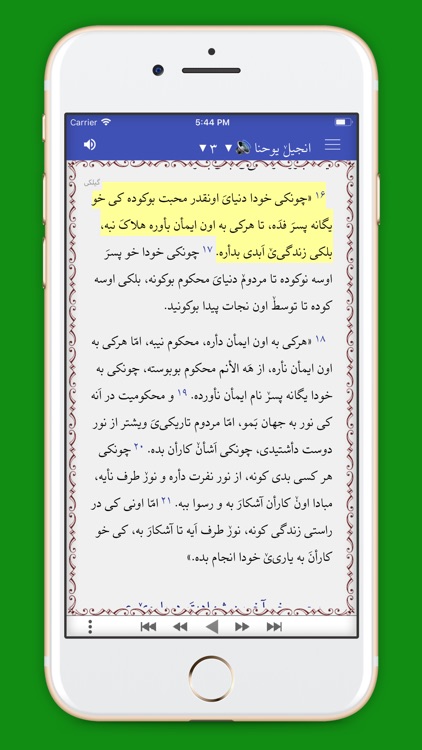 Carrier 5:44 PM
انجیلٚ یوحنا ۳
گیلکی
۱۶ «چونکی خودا دنیایَ اونقدر محبت بوکوده کی خو
یگانه پسرَ فَدَه، تا هرکی به اون ایمأن بأوره هلاکَ نبه،
بلکی زندگیٔ اَبدی بدأره. ۱۷ چونکی خودا خو پسرَ
اوسه نوکوده تا مردومٚ دنیایَ محکوم بوکونه، بلکی اوسه
کوده تا توسطٚ اون نجات پیدا بوکونید.
۱۸ «هرکی به اون ایمأن دأره، محکوم نیبه، امّا هرکی به
اون ایمأن نأره، از هَه الأنم محکوم بوبوسته، چونکی به
خودا یگانه پسرٚ نام ایمأن نأورده. ۱۹ و محکومیت در اَنه
کی نور به جهان بَمو، امّا مردوم تاریکیَ ویشتر از نور
دوست دأشتیدی، چونکی اَشأنٚ کارأن بده. ۲۰ چونکی
هر کسی بدی کونه، از نور نفرت دأره و نورٚ طرف نأیه،
مبادا اونٚ کارأن آشکارَ به و رسوا ببه. ۲۱ امّا اونی کی در
راستی زندگی کونه، نورٚ طرف اَیه تا آشکارَ به، کی خو
کارأنَ به یاریٔ خودا انجام بده.»